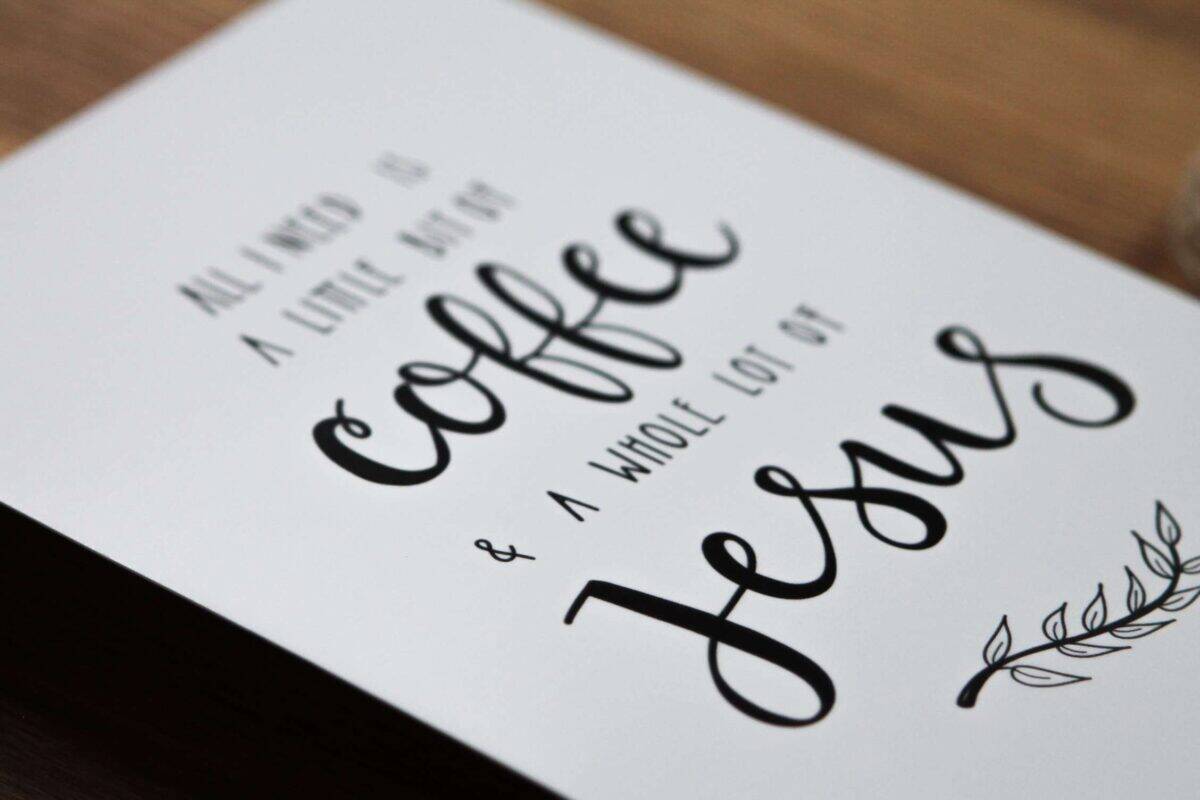 ALL I NEED IS
A LITTLE BIT OF
coffee
& A WHOLE LOT OF
Jesus